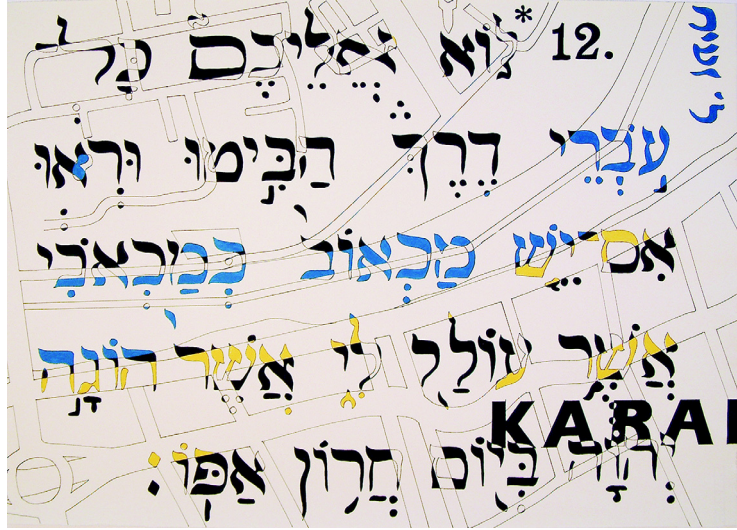 12. *לוֹא אֲלֵיכֶם כָּל־
עֹבְרֵי דֶרֶךְ הַבִּיטוּ וּרְאוּ
אִם־יֵשׁ מַכְאוֹב כְּמַכְאֹבִי
אֲשֶׁר עוֹלַל לִי אֲשֶׁר הוֹגָה
KARA
יְהוָה בְּיוֹם חֲרוֹן אַפּוֹ׃